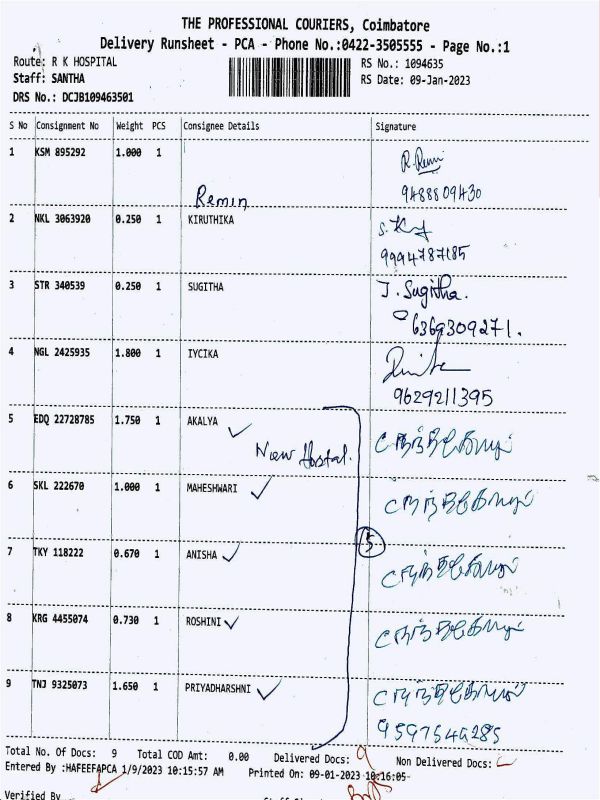 THE PROFESSIONAL COURIERS, Coimbatore
Delivery Runsheet - PCA - Phone No.:0422-3505555 - Page No.:1
Route: R K HOSPITAL RS No.: 1094635
Staff: SANTHA RS Date: 09-Jan-2023
DRS No.: DCJB109463501
S No Consignment No Weight PCS Consignee Details Signature
1 KSM 895292 1.000 1 R. Remi
Remin 9488809430
2 NKL 3063920 0.250 1 KIRUTHIKA
9994787185
3 STR 340539 0.250 1 SUGITHA J. Sugitha.
6369309271.
4 NGL 2425935 1.800 1 IYCIKA
9629211395
5 EDQ 22728785 1.750 1 AKALYA
New Hostal.
6 SKL 222670 1.000 1 MAHESHWARI
5
7 TKY 118222 0.670 1 ANISHA
8 KRG 4455074 0.730 1 ROSHINI
9 TNJ 9325073 1.650 1 PRIYADHARSHNI
9597546285
Total No. Of Docs: 9 Total COD Amt: 0.00 Delivered Docs: 9 Non Delivered Docs:
Entered By :HAFEEFAPCA 1/9/2023 10:15:57 AM Printed On: 09-01-2023 10:16:05
Verified By